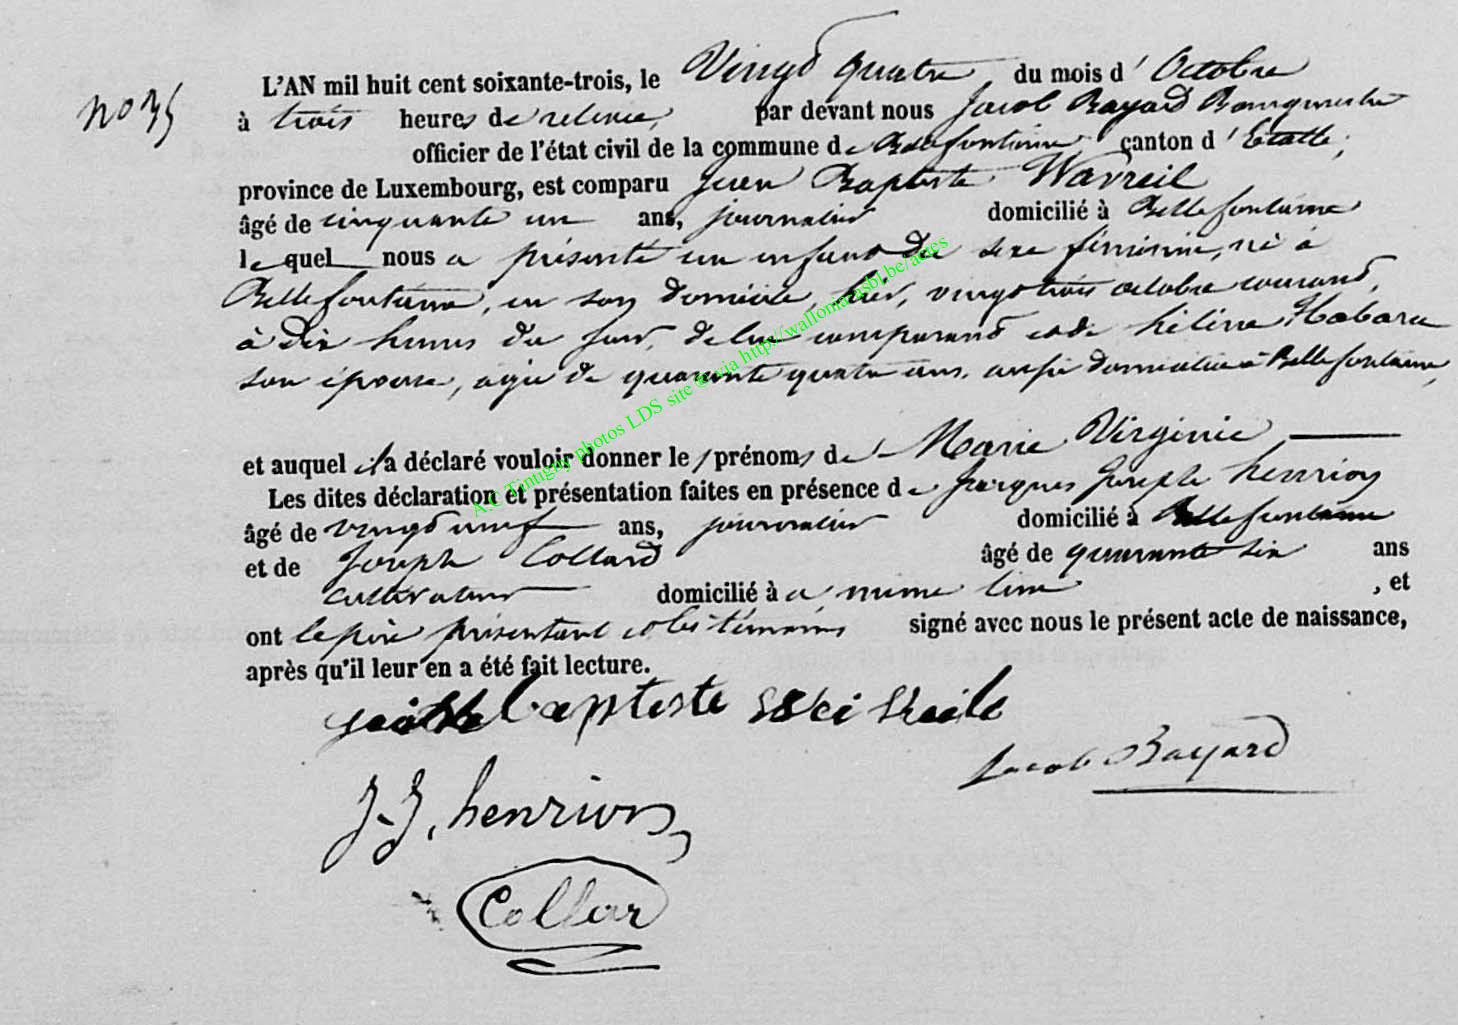 No 35
L'AN mil huit cent soixante-trois, le Vingt quatre du mois d' Octobre
à trois heures de relevée, par devant nous Jacob Bayard Bourgmestre
officier de l'état civil de la commune de Bellefontaine canton d'Etalle,
province de Luxembourg, est comparu Jean Baptiste Wavreil
âgé de cinquante un ans, journalier domicilié à Bellefontaine
lequel nous a présenté un enfant du sexe féminin, né à
Bellefontaine, en son domicile, hier, vingt trois octobre courant,
à dix heures du soir, de lui comparant et de hélène Habara
son épouse, agée de quarante quatre ans, aussi domiciliée à Bellefontaine,
et auquel il a déclaré vouloir donner les prénoms de Marie Virginie
Les dites déclaration et présentation faites en présence de Jacques Joseph henrion
âgé de vingt neuf ans, journalier domicilié à Bellefontaine
et de Joseph Collard âgé de quarante six ans
cultivateur domicilié à a même lieu, et
ont le père présentant et les témoins signé avec nous le présent acte de naissance,
après qu'il leur en a été fait lecture.
baptiste
Jacob Bayard
J-J. henrion
Collar
A.C Tintigny photos LDS site © via http://wallonia.asbl.be/actes